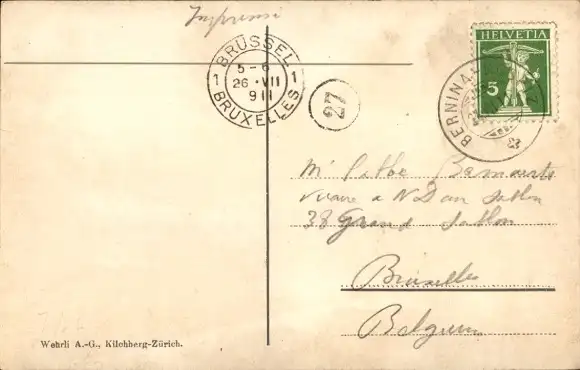 Imprimé
BRÜSSEL
1 5-6 1
26 • VII
911
BRUXELLES
27
HELVETIA
5
BERNINA
Mr l'abbé
vicaire à N D au Sablon
38 Grand Sablon
Bruxelles
Belgium
Wehrli A.-G., Kilchberg-Zürich.